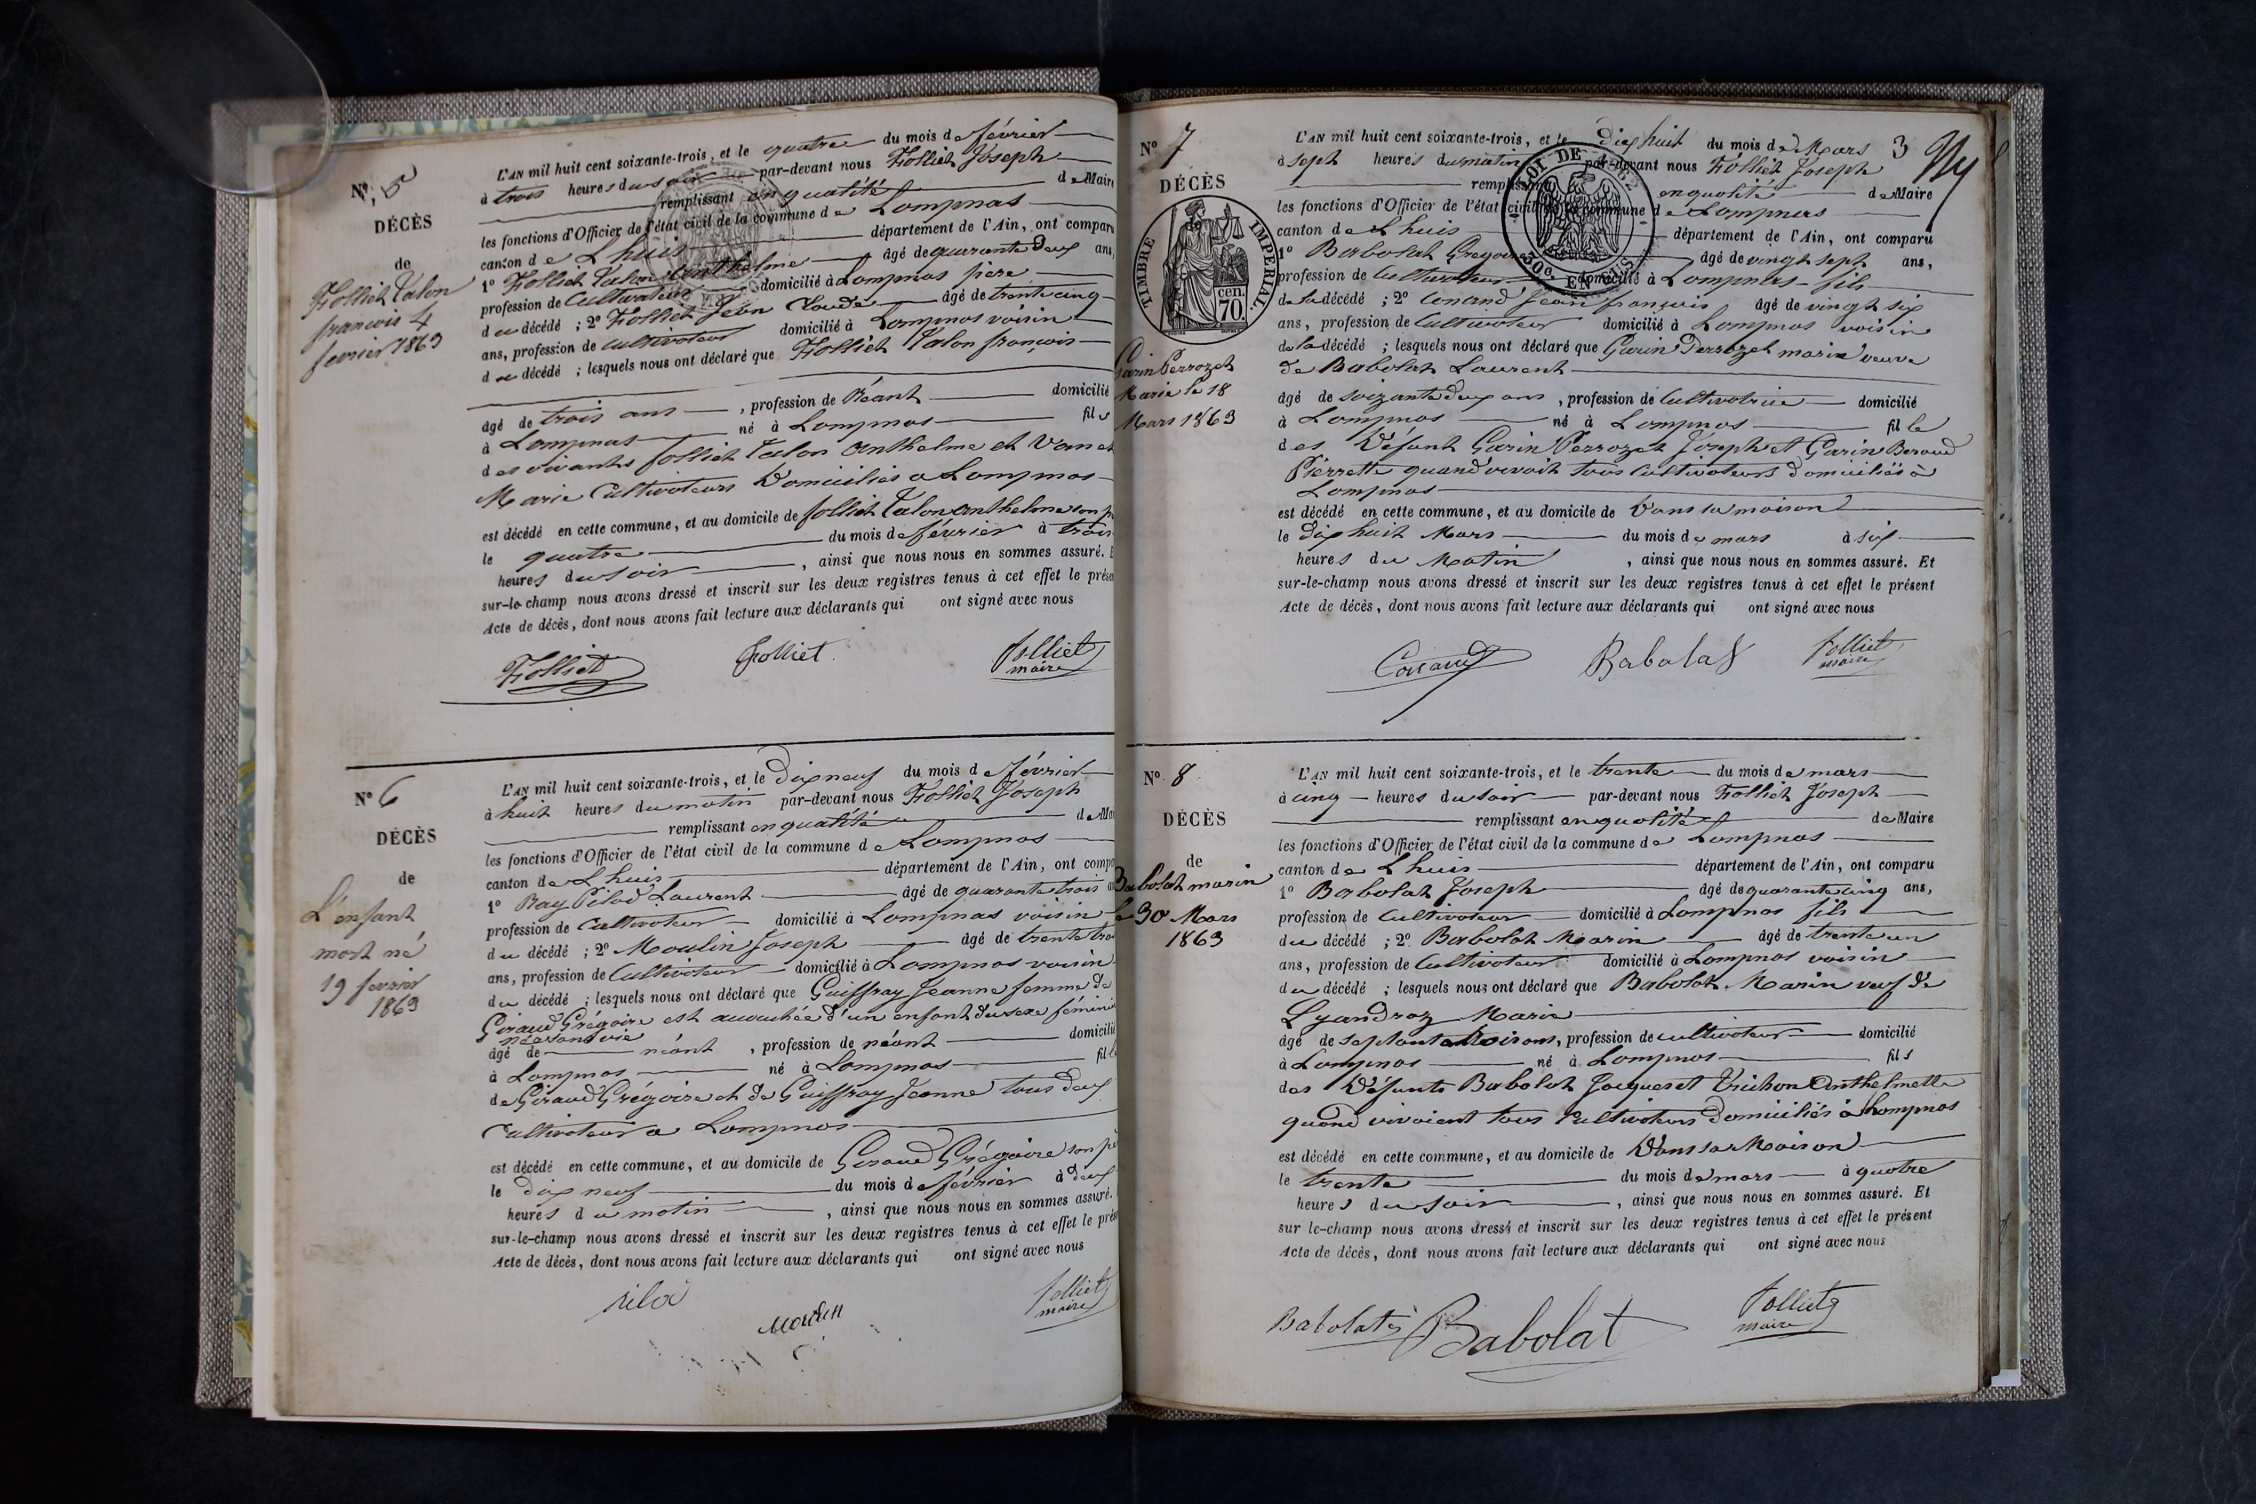 N°, 5
DÉCÈS
de
Folliet Talon
francois 4
fevrier 1863
L'AN mil huit cent soixante-trois, et le quatre du mois de février
à trois heures du soir par-devant nous Folliet Joseph
remplissant en qualité de Maire
les fonctions d'Officier de l'état civil de la commune de Lompnas
canton de Lhuis département de l'Ain, ont comparu
1° Folliet Talon Anthelme âgé de quarante deux ans,
profession de Cultivateur domicilié à Lompnas père
du décédé ; 2° Folliet Jean Claude âgé de trente cinq
ans, profession de cultivateur domicilié à Lompnas voisin
du décédé ; lesquels nous ont déclaré que Folliet Talon françois
âgé de trois ans, profession de Néant domicilié
à Lompnas né à Lompnas fils
des vivants folliet Talon Anthelme et
Marie Cultivateurs Domiciliés a Lompnas
est décédé en cette commune, et au domicile de folliet Talon anthelme son
le quatre du mois de février à trois
heures du soir, ainsi que nous nous en sommes assuré.
sur-le-champ nous avons dressé et inscrit sur les deux registres tenus à cet effet le
Acte de décès, dont nous avons fait lecture aux déclarants qui ont signé avec nous
Folliet folliet folliet
maire
N° 6
DÉCÈS
de
L'enfant
mort né
19 fevrier
1863
L'AN mil huit cent soixante-trois, et le Dix neuf du mois de février
à huit heures du matin par-devant nous Folliet Joseph
remplissant en qualité de
les fonctions d'Officier de l'état civil de la commune de Lompnas
canton de Lhuis département de l'Ain, ont
1° Ray Pilod Laurent âgé de quarante trois
profession de Cultivateur domicilié à Lompnas voisin
du décédé ; 2° Moulin Joseph âgé de trente
ans, profession de Cultivateur domicilié à Lompnas voisin
du décédé ; lesquels nous ont déclaré que Guiffray Jeanne femme de
Giraud Grégoire est accouchée d'un enfant du sexe féminin
né sans vie
âgé de néant, profession de néant domicilié
à Lompnas né à Lompnas fille
de Giraud Grégoire et de Guiffray Jeanne tous deux
Cultivateur a Lompnas
est décédé en cette commune, et au domicile de Giraud Grégoire son
le dix neuf du mois de février à deux
heures du matin, ainsi que nous nous en sommes assuré.
sur-le-champ nous avons dressé et inscrit sur les deux registres tenus à cet effet le
Acte de décès, dont nous avons fait lecture aux déclarants qui ont signé avec nous
moulin folliet
maire
3
N° 7
DÉCÈS
TIMBRE IMPERIAL.
cen. 70.
Garin Perrozet
Marie le 18
Mars 1863
LOI DE 1862
50c. EN SUS
L'AN mil huit cent soixante-trois, et le Dix huit du mois de Mars
à sept heures du matin par-devant nous Folliet Joseph
remplissant en qualité de Maire
les fonctions d'Officier de l'état civil de la commune de Lompnas
canton de Lhuis département de l'Ain, ont comparu
1° Babolat Gregoire âgé de vingt sept ans,
profession de Cultivateur domicilié à Lompnas fils
de la décédé ; 2° Jean françois âgé de vingt six
ans, profession de Cultivateur domicilié à Lompnas voisin
de la décédé ; lesquels nous ont déclaré que Garin Perrozet marie veuve
de Babolat Laurent
âgé de soizante deux ans, profession de Cultivatrice domicilié
à Lompnas né à Lompnas fille
des Défunt Garin Perrozet Joseph et Garin Beraud
Pierrette quand vivoit tous Cultivateurs domiciliés à
Lompnas
est décédé en cette commune, et au domicile de Dans sa maison
le dix huit Mars du mois de mars à six
heures du Matin, ainsi que nous nous en sommes assuré. Et
sur-le-champ nous avons dressé et inscrit sur les deux registres tenus à cet effet le présent
Acte de décès, dont nous avons fait lecture aux déclarants qui ont signé avec nous
Babolat folliet
maire
N° 8
DÉCÈS
de
Babolat marin
le 30 Mars
1863
L'AN mil huit cent soixante-trois, et le trente du mois de mars
à cinq heures du soir par-devant nous Folliet Joseph
remplissant en qualité de Maire
les fonctions d'Officier de l'état civil de la commune de Lompnas
canton de Lhuis département de l'Ain, ont comparu
1° Babolat Joseph âgé de quarante cinq ans,
profession de Cultivateur domicilié à Lompnas fils
du décédé ; 2° Babolat Marin âgé de trente un
ans, profession de Cultivateur domicilié à Lompnas voisin
du décédé ; lesquels nous ont déclaré que Babolat Marin veuf de
Lyandroz Marie
âgé de septante trois ans, profession de cultivateur domicilié
à Lompnas né à Lompnas fils
des Défunts Babolat Jacques et Trichon Anthelmette
quand vivoient tous Cultivateurs domiciliés à Lompnas
est décédé en cette commune, et au domicile de Dans sa Maison
le trente du mois de mars à quatre
heures du soir, ainsi que nous nous en sommes assuré. Et
sur le-champ nous avons dressé et inscrit sur les deux registres tenus à cet effet le présent
Acte de décès, dont nous avons fait lecture aux déclarants qui ont signé avec nous
Babolat Babolat folliet
maire